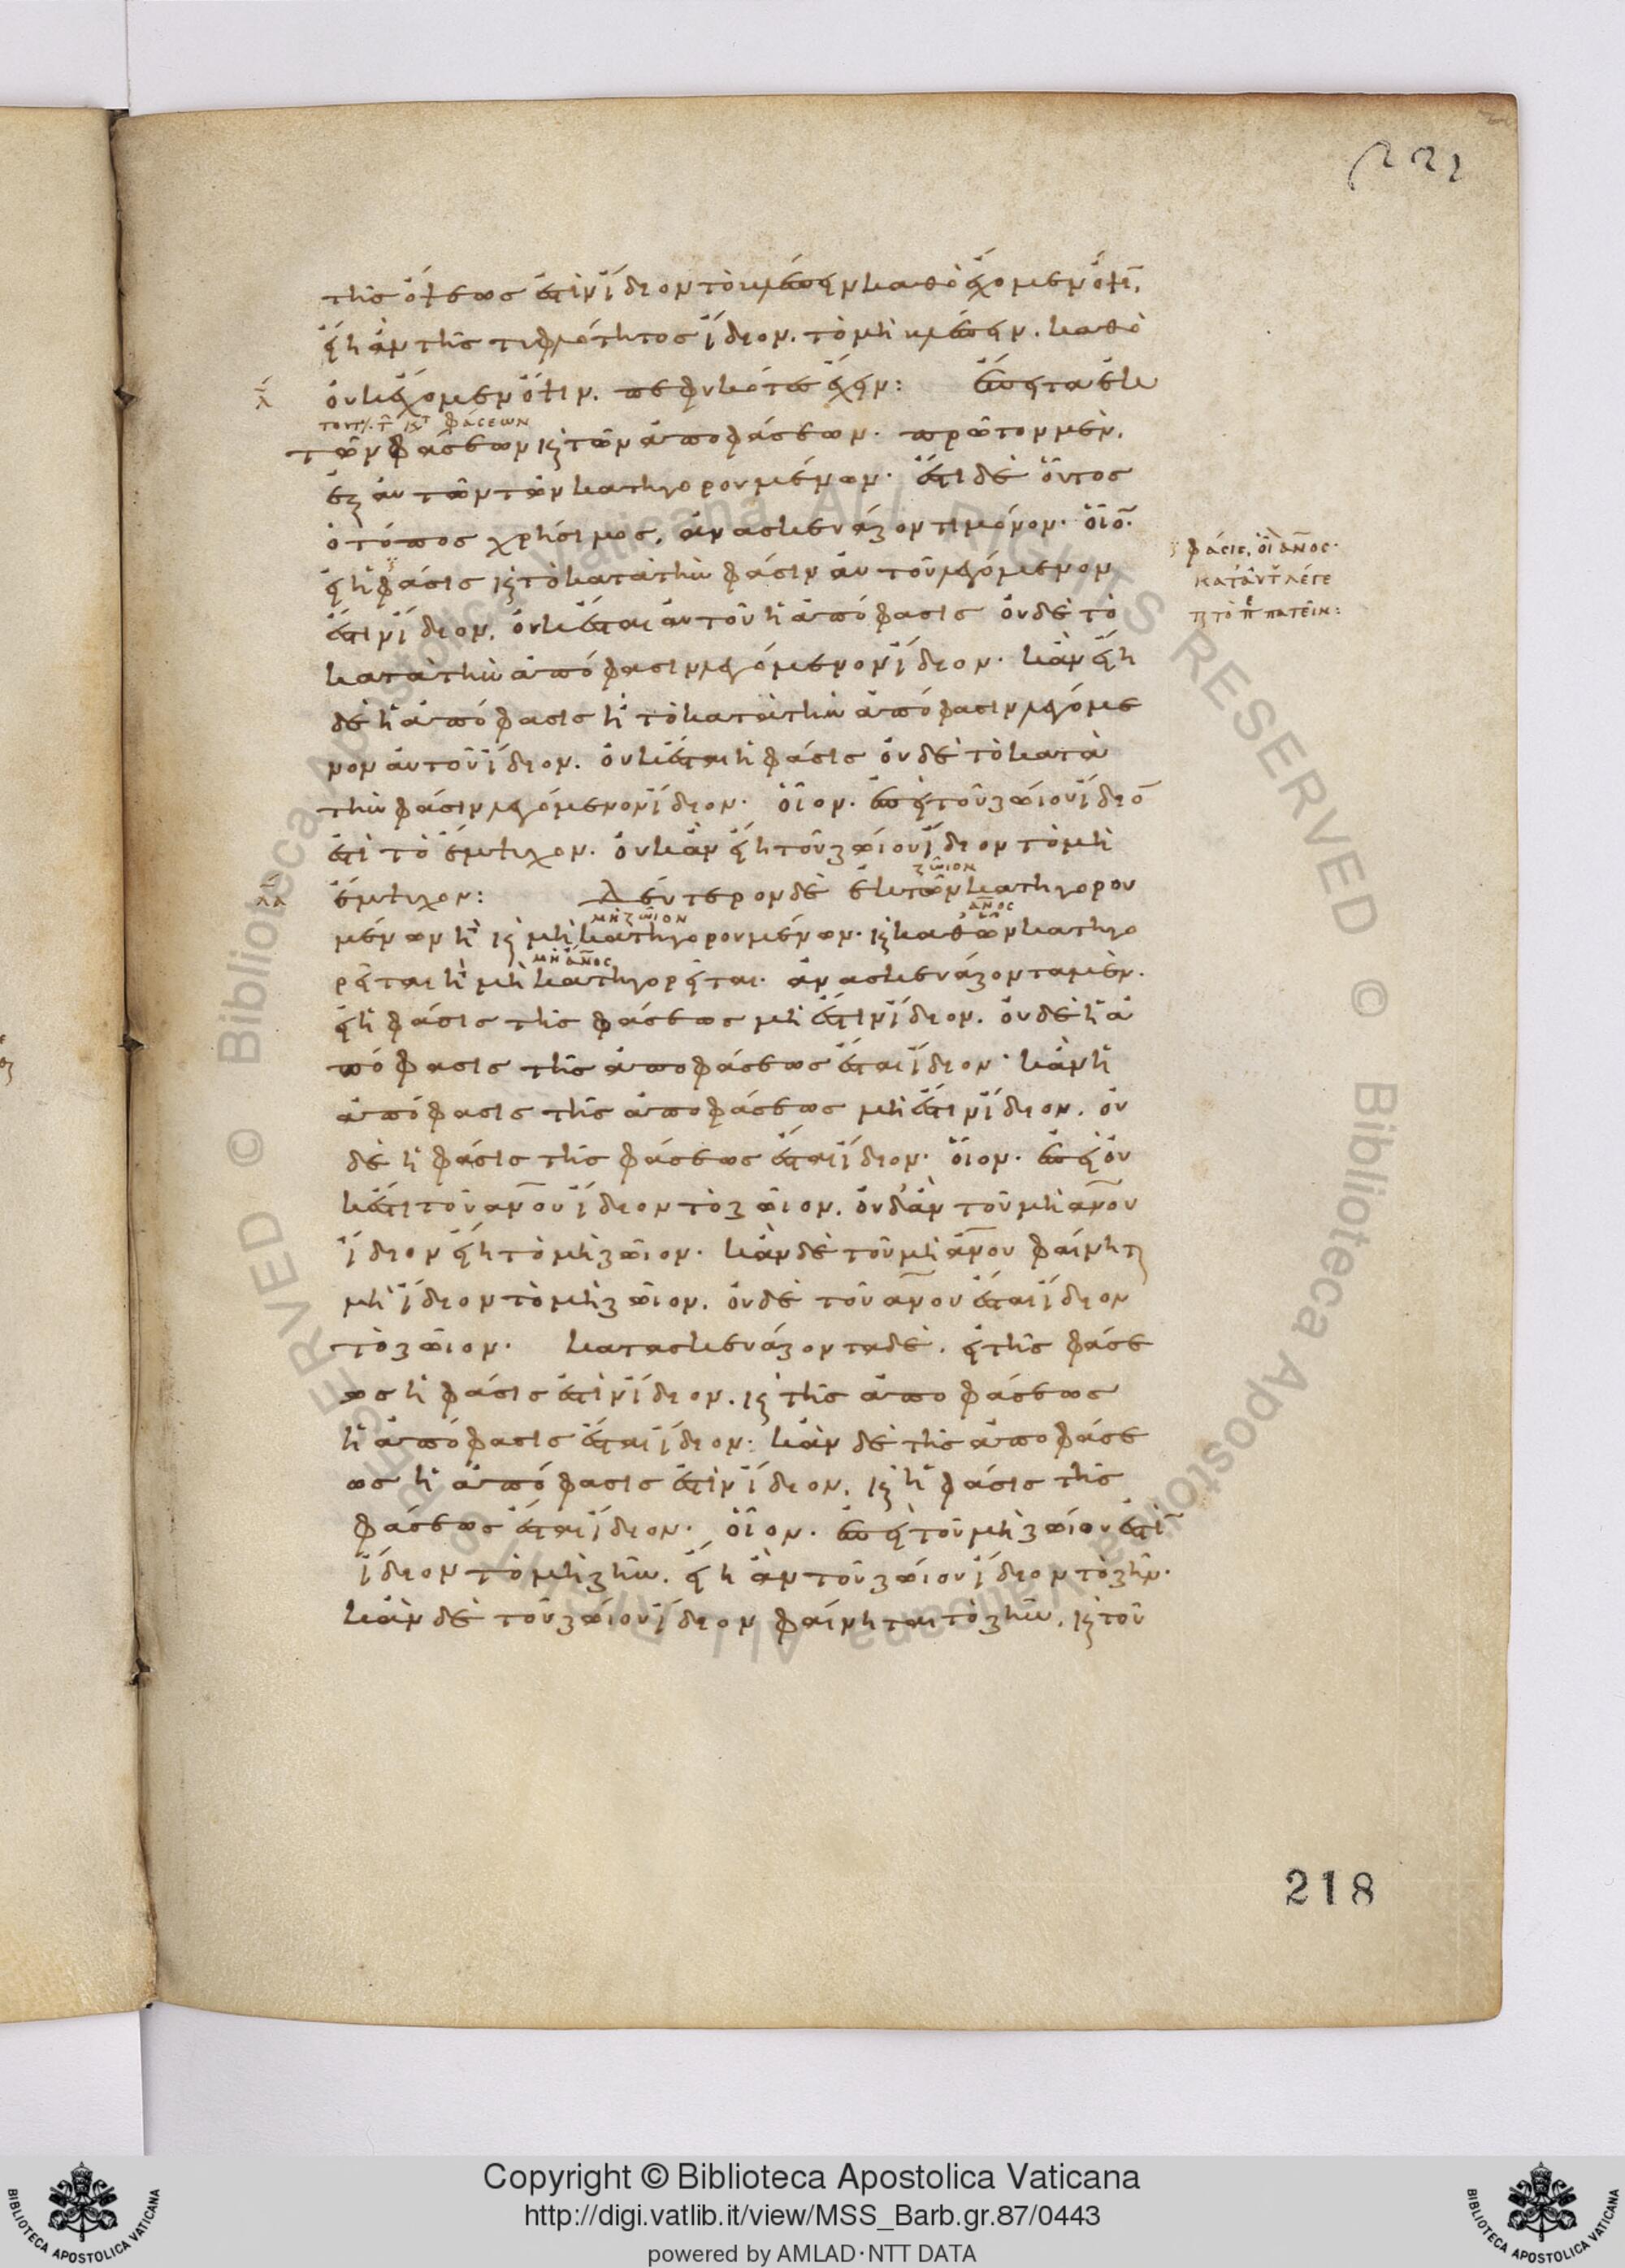 221
τῆς ὄψεώς ἐστιν ἴδιον τὸ βλέπειν καθὸ ἔχομεν ὄψιν,
εἴη ἂν τῆς τυφλότητος ἴδιον, τὸ μὴ βλέπειν, καθὸ
οὐκ ἔχομεν ὄψιν, πεφυκότες ἔχειν: ἔπειτα ἐκ
λ
τῶν φάσεων καὶ τῶν ἀποφάσεων. πρῶτον μὲν,
ἐξ αὐτῶν τῶν κατηγορουμένων. ἔστι δὲ οὗτος
ὁ τόπος χρήσιμος, ἀνασκευάζοντι μόνον. οἷον.
εἰ ἡ φάσις καὶ τὸ κατὰ τὴν φάσιν αὐτοῦ λεγόμενον
ἐστὶν ἴδιον, οὐκ ἔσται αὐτοῦ ἡ ἀπόφασις οὐδὲ τὸ
κατὰ τὴν ἀπόφασιν λεγόμενον ἴδιον. κἂν εἴη
δὲ ἡ ἀπόφασις ἢ τὸ κατὰ τὴν ἀπόφασιν λεγόμε
νον αὐτοῦ ἴδιον, οὐκ ἔσται ἡ φάσις οὐδὲ τὸ κατὰ
τὴν φάσιν λεγόμενον ἴδιον. οἷον. ἐπεὶ τοῦ ζώιου ἴδιον
ἐστὶ τὸ ἔμψυχον. οὐκ ἂν εἴη τοῦ ζώιου ἴδιον τὸ μὴ
ἔμψυχον: Δεύτερον δὲ ἐκ τῶν κατηγορου
λα
ζῶιον
μένων ἢ καὶ μὴ κατηγορουμένων. καὶ καθ' ὧν κατηγο
μὴ ζῶιον
ἄνος
ρεῖται ἢ μὴ κατηγορεῖται. ἀνασκευάζοντα μὲν.
μὴ ἄνος
εἰ ἡ φάσις τῆς φάσεως μή ἐστιν ἴδιον. οὐδὲ ἡ ἀ
πόφασις τῆς ἀποφάσεως ἔσται ἴδιον. κἂν ἡ
ἀπόφασις τῆς ἀποφάσεως μή ἐστιν ἴδιον. οὐ
δὲ ἡ φάσις τῆς φάσεως ἔσται ἴδιον. οἷον. ἐπεὶ οὐ
κ ἔστι τοῦ ἀνου ἴδιον τὸ ζῶιον. οὐδ' ἂν τοῦ μὴ ἀνου
ἴδιον εἴη τὸ μὴ ζῶιον. κἂν δὲ τοῦ μὴ ἀνου φαίνηται
μὴ ἴδιον τὸ μὴ ζῶιον. οὐδὲ τοῦ ἀνου ἔσται ἴδιον
τὸ ζῶιον. κατασκευάζοντα δὲ. εἰ τῆς φάσε
ως ἡ φάσις ἐστὶν ἴδιον. καὶ τῆς ἀποφάσεως
ἡ ἀπόφασις ἔσται ἴδιον. κἂν δὲ τῆς ἀποφάσε
ως ἡ ἀπόφασις ἐστὶν ἴδιον. καὶ ἡ φάσις τῆς
φάσεως ἔσται ἴδιον. οἷον. ἐπεὶ τοῦ μὴ ζώιου ἐστὶν
ἴδιον τὸ μὴ ζῆν. εἴη ἂν τοῦ ζώιου ἴδιον τὸ ζῆν.
κἂν δὲ τοῦ ζώιου ἴδιον φαίνηται τὸ ζῆν. καὶ τοῦ
φάσις, οἷ ἄνος.
κατ' αὐτ λέγε
ται τὸ πατεῖν:
218
Copyright © Biblioteca Apostolica Vaticana
http://digi.vatlib.it/view/MSS_Barb.gr.87/0443
powered by AMLAD·NTT DATA